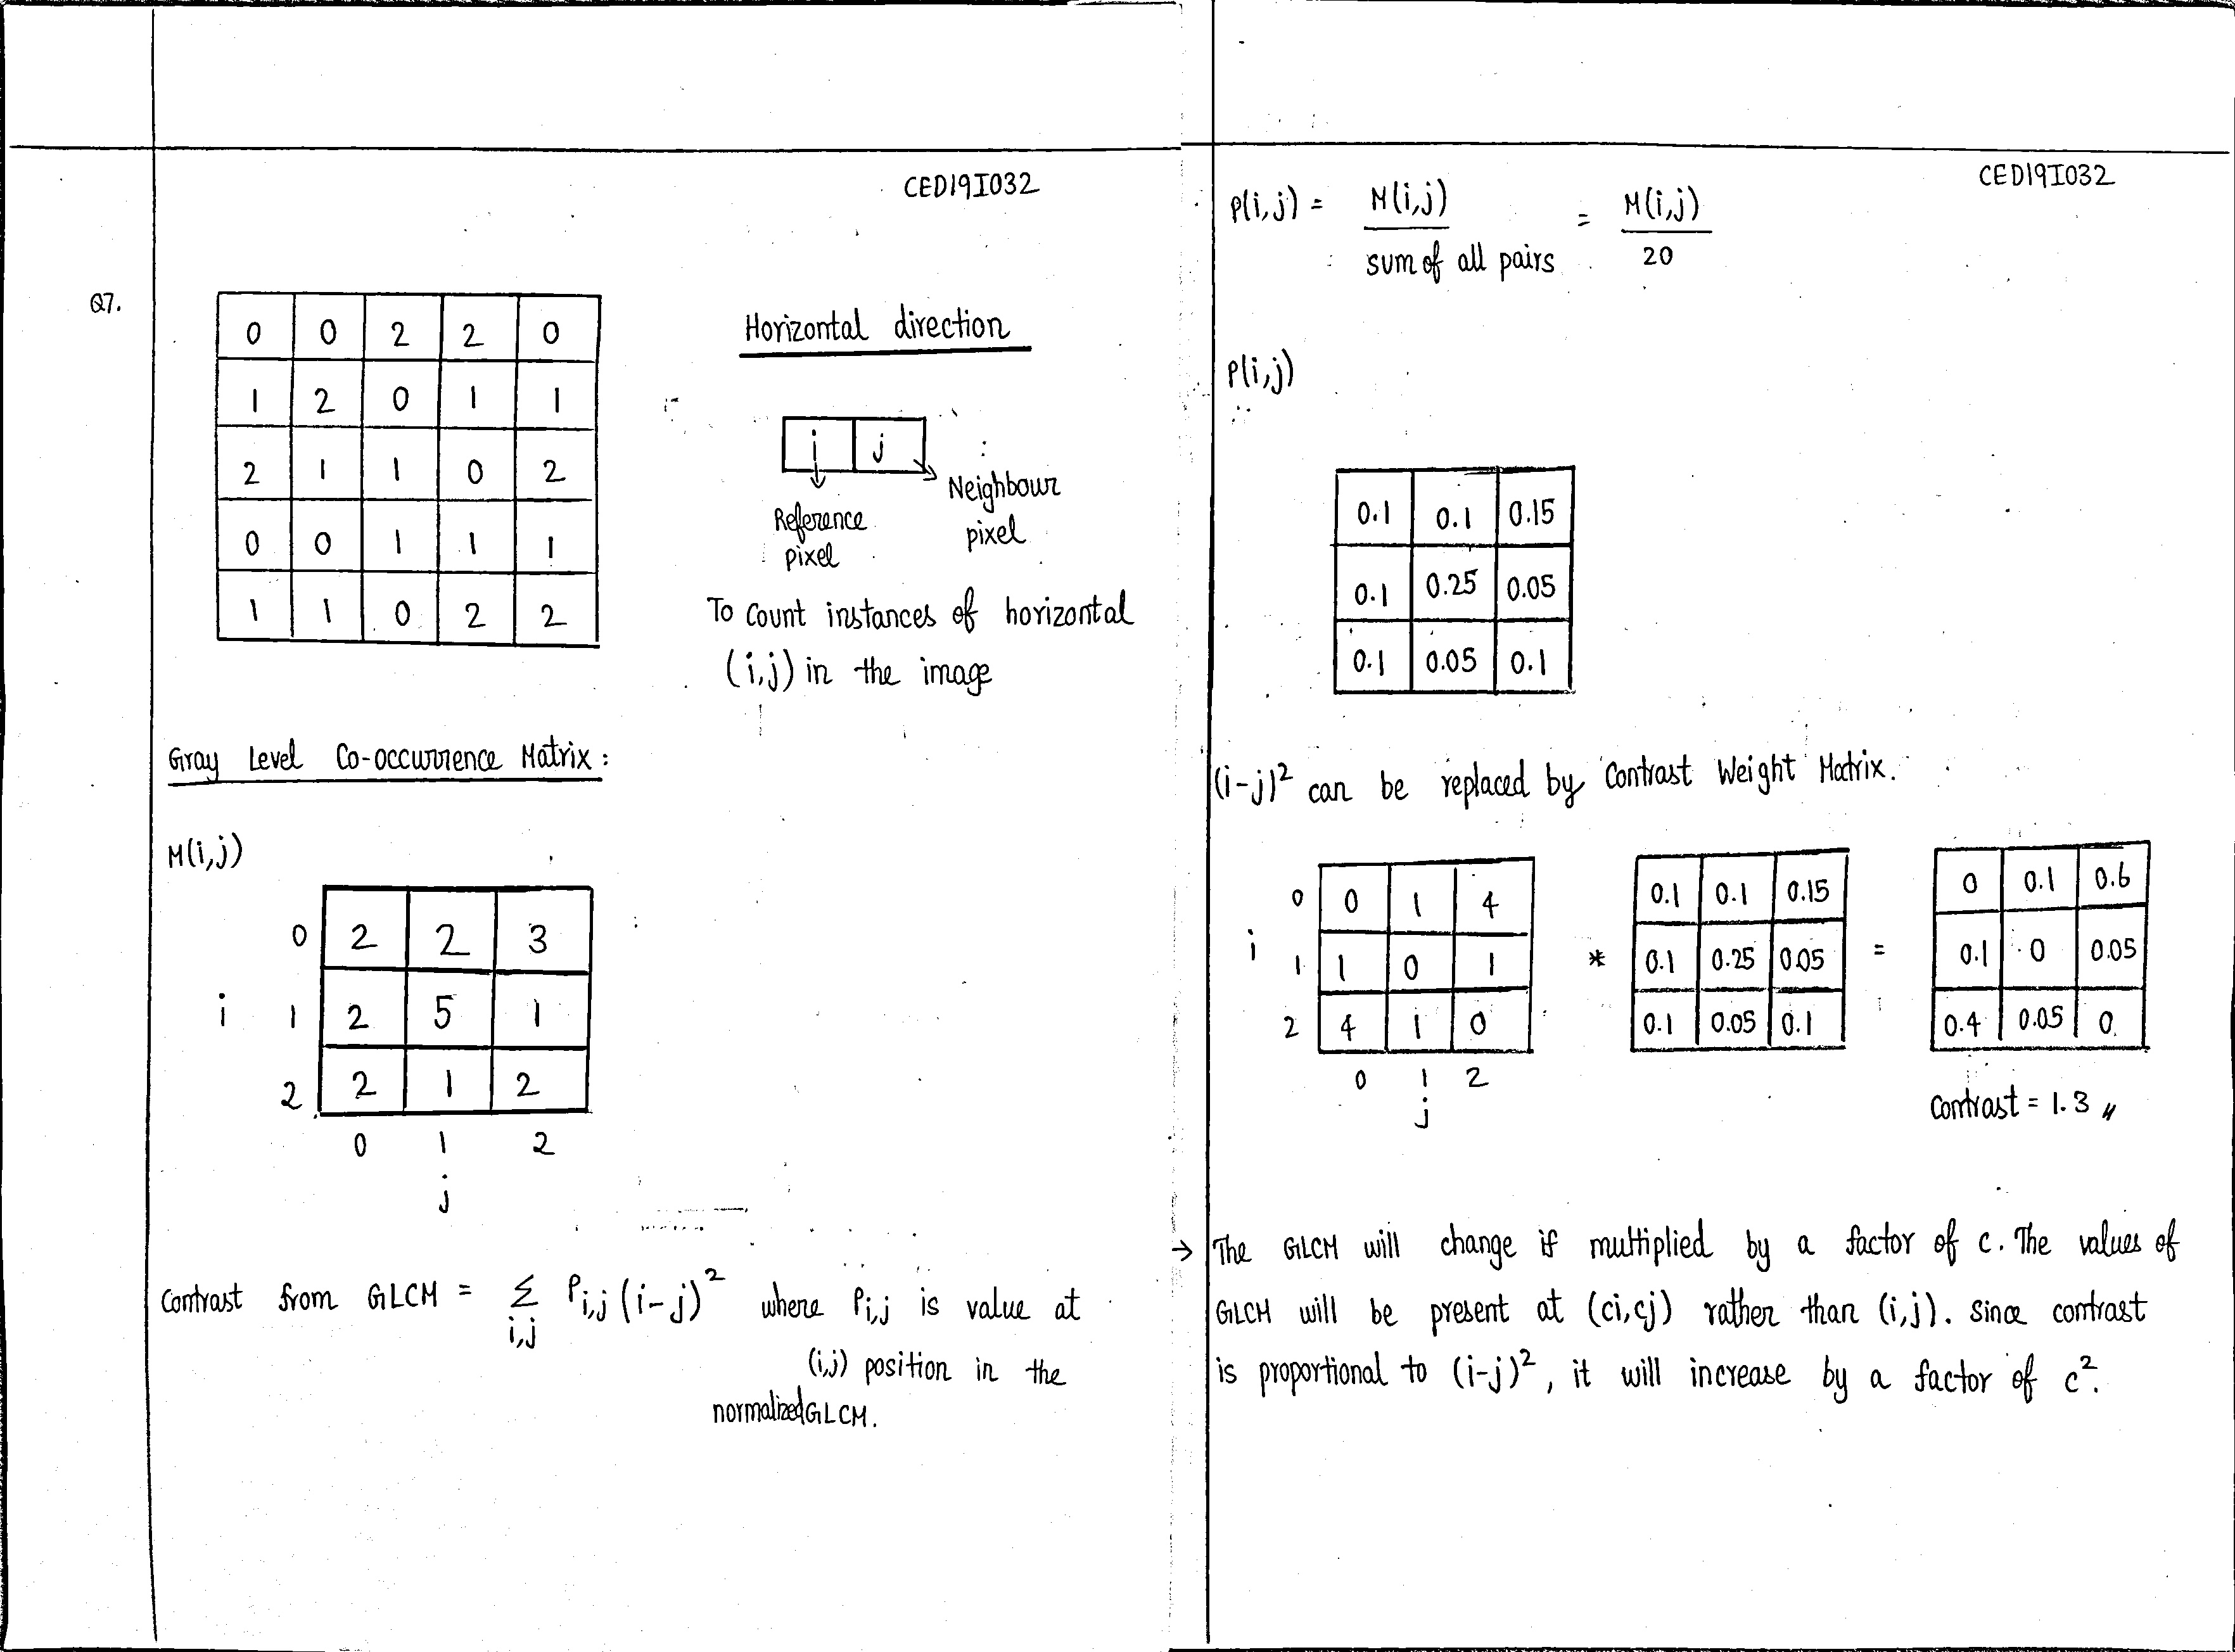 CED19I032
Q7.
0 0 2 2 0
1 2 0 1 1
2 1 1 0 2
0 0 1 1 1
1 1 0 2 2
Horizontal direction
i j
Reference pixel
Neighbour pixel
To count instances of horizontal
(i,j) in the image
Gray Level Co-occurrence Matrix:
M(i,j)
0 2 2 3
i 1 2 5 1
2 2 1 2
0 1 2
j
Contrast from GLCM = Σ P i,j (i-j)² where P i,j is value at
i,j
(i,j) position in the
normalized GLCM.
CED19I032
P(i,j) = M(i,j) / sum of all pairs = M(i,j) / 20
P(i,j)
0.1 0.1 0.15
0.1 0.25 0.05
0.1 0.05 0.1
(i-j)² can be replaced by Contrast Weight Matrix.
0 0 1 4 0.1 0.1 0.15 0 0.1 0.6
i 1 1 0 1 * 0.1 0.25 0.05 = 0.1 0 0.05
2 4 1 0 0.1 0.05 0.1 0.4 0.05 0
0 1 2
j
Contrast = 1.3 "
→ The GLCM will change if multiplied by a factor of c. The values of
GLCM will be present at (ci,cj) rather than (i,j). Since contrast
is proportional to (i-j)², it will increase by a factor of c².